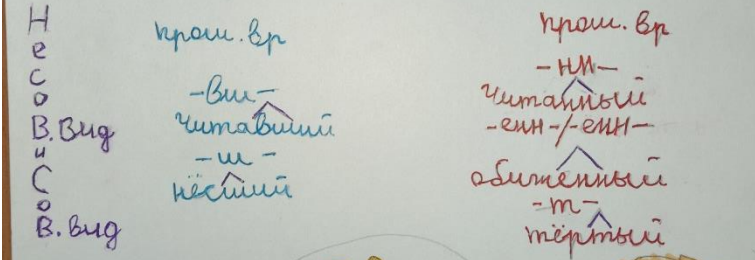 Несов. вид и Сов. вид
прош. вр
-вш-
читавший
-ш-
нёсший
прош. вр
-нн-
читанный
-енн-/-енн-
обиженный
-т-
тёртый